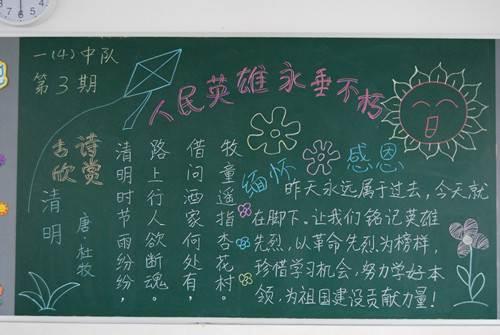 一(4)中队
第3期
人民英雄永垂不朽
古诗
欣赏
清明
唐·杜牧
清明时节雨纷纷，
路上行人欲断魂。
借问酒家何处有，
牧童遥指杏花村。
缅怀 感恩
昨天永远属于过去，今天就
在脚下。让我们铭记英雄
先烈，以革命先烈为榜样，
珍惜学习机会，努力学好本
领，为祖国建设贡献力量！